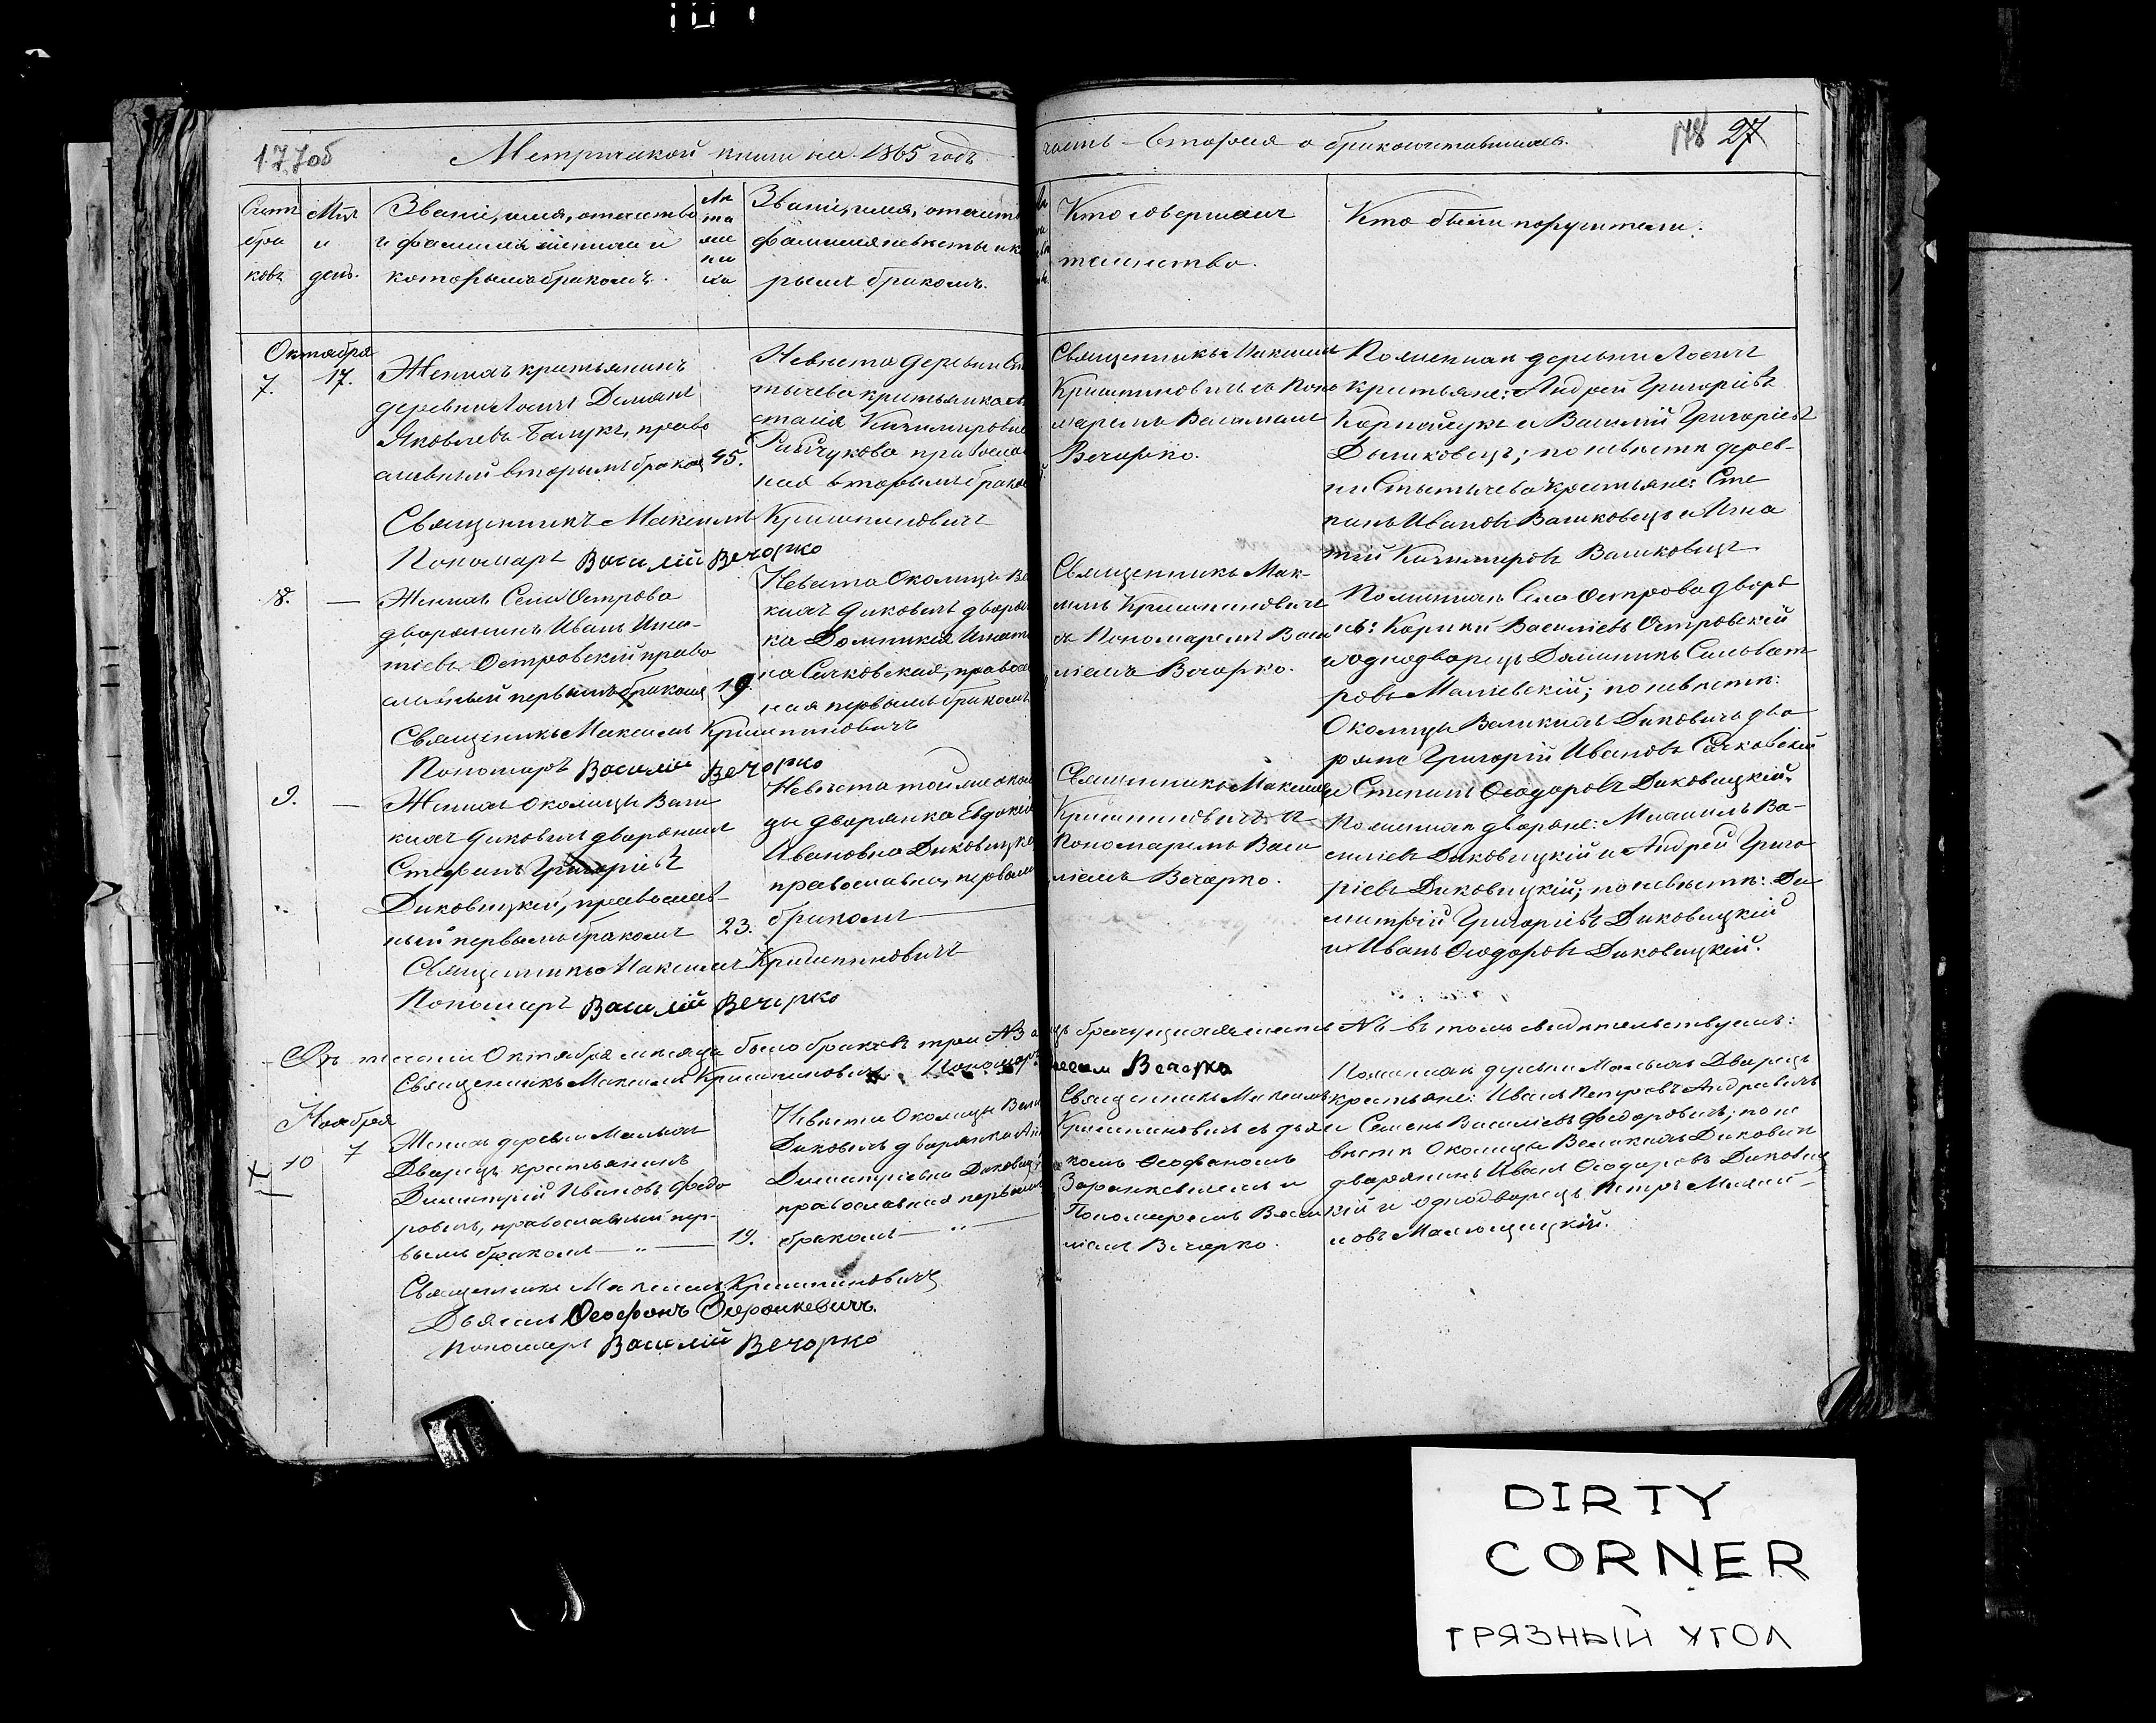 177об
Метрической книги на 1865 годъ
часть вторая о бракосочетавшихся.
148 27
Счетъ
бра
ковъ
Мѣс
и
день.
Званіе, имя, отечество
и фамилія жениха и
которымъ бракомъ.
Лѣ
та
же
ни
ха
Званіе, имя, отечеств
фамилія невѣсты и к
рымъ бракомъ.
Кто совершалъ
таинство.
Кто были поручители.
Октября
7. 17.
Женихъ крестьянинъ
деревни Демьянъ
Яковлевъ Балукъ, право
славный вторымъ бракомъ 45.
Невѣста деревни Ст
тычева крестьянка
стасія Казимирова
православ
ная вторымъ браком
Священникъ Максимъ
Кришпиновичъ съ Поно
маремъ Василіемъ
Вечорко.
По женихѣ деревни
крестьяне: Андрей Григорьевъ
и Василій Григорьевъ
по невѣстѣ дерев-
ни Стытычева крестьяне: Сте
панъ Ивановъ Вашковецъ и Игна
тій Казимировъ Вашковецъ.
Священникъ Максимъ Кришпиновичъ
Пономарь Василій Вечорко
8. —
Женихъ Села Острова
дворянинъ Иванъ Игна-
тіевъ Островскій право
славный первымъ бракомъ 19
Невѣста Околицы Ве
кихъ Диковичъ дворян
ка Домникія Игнат
на Сачковская, правосл
ная первымъ бракомъ
Священникъ Мак-
симъ Кришпиновичъ
съ Пономаремъ Васи
ліемъ Вечорко.
По женихѣ Села Острова дворя
не: Василіевъ Островскій
и однодворецъ
ровъ по невѣстѣ:
Околицы Великихъ Диковичъ дво
ряне Григорій Ивановъ Сачковскій
и Степанъ Ѳеодоровъ Диковицкій.
Священникъ Максимъ Кришпиновичъ
Пономарь Василій Вечорко
9. —
Женихъ околицы Вели
кихъ Диковичъ дворянинъ
Стефанъ Григорьевъ
Диковицкій, православ-
ный первымъ бракомъ 23.
Невѣста той же окол
цы дворянка Евдокія
Ивановна Диковицка
православна, первымъ
бракомъ
Священникъ Максимъ
Кришпиновичъ съ
Пономаремъ Васи
ліемъ Вечорко.
По женихѣ дворяне: Михаилъ Ва-
силіевъ Диковицкій и Андрей Григо
ріевъ Диковицкій; по невѣстѣ: Ди
митрій Григорьевъ Диковицкій
и Иванъ Ѳеодоровъ Диковицкій.
Священникъ Максимъ Кришпиновичъ
Пономарь Василій Вечорко
Въ теченіи Октября мѣсяца было браковъ три въ томъ свидѣтельствуемъ:
Священникъ Максимъ Кришпиновичъ Пономарь Вечорко
Ноября
10 7
Женихъ деревни Малыхъ
Дворецъ крестьянинъ
Димитрій Ивановъ Федо
ровичъ, православный пер-
вымъ бракомъ — " — 19.
Невѣста Околицы Вели
Диковичъ дворянка
Димитріевна Диковиц
православная первымъ
бракомъ — " —
Священникъ Максимъ
Кришпиновичъ съ дья
комъ Ѳеофаномъ
и
Пономаремъ Васи
ліемъ Вечорко.
По женихѣ деревни Малыхъ Дворецъ
крестьяне: Иванъ Петровъ Андреевичъ
и Семенъ Василіевъ Федоровичъ; по не
вѣстѣ Околицы Великихъ Диковичъ
дворянинъ Иванъ Ѳеодоровъ Диковиц
кій и однодворецъ Петръ
Священникъ Максимъ Кришпиновичъ
Дьякъ Ѳеофанъ
Пономарь Василій Вечорко
DIRTY
CORNER
ГРЯЗНЫЙ УГОЛ